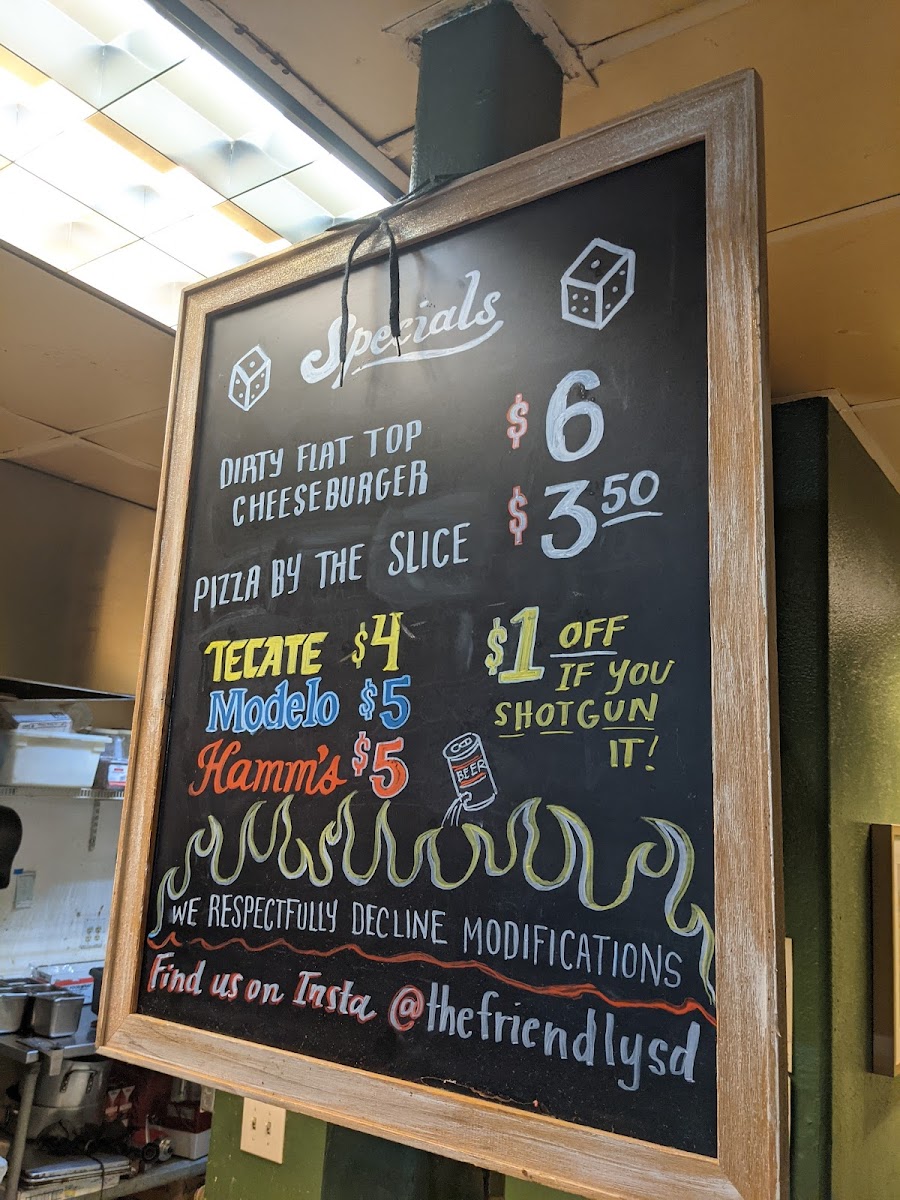 Specials
DIRTY FLAT TOP
CHEESEBURGER
$6
PIZZA BY THE SLICE
$3.50
TECATE $4
Modelo $5
Hamm's $5
$1 OFF
IF YOU
SHOTGUN
IT!
BEER
WE RESPECTFULLY DECLINE MODIFICATIONS
Find us on Insta @thefriendlysd